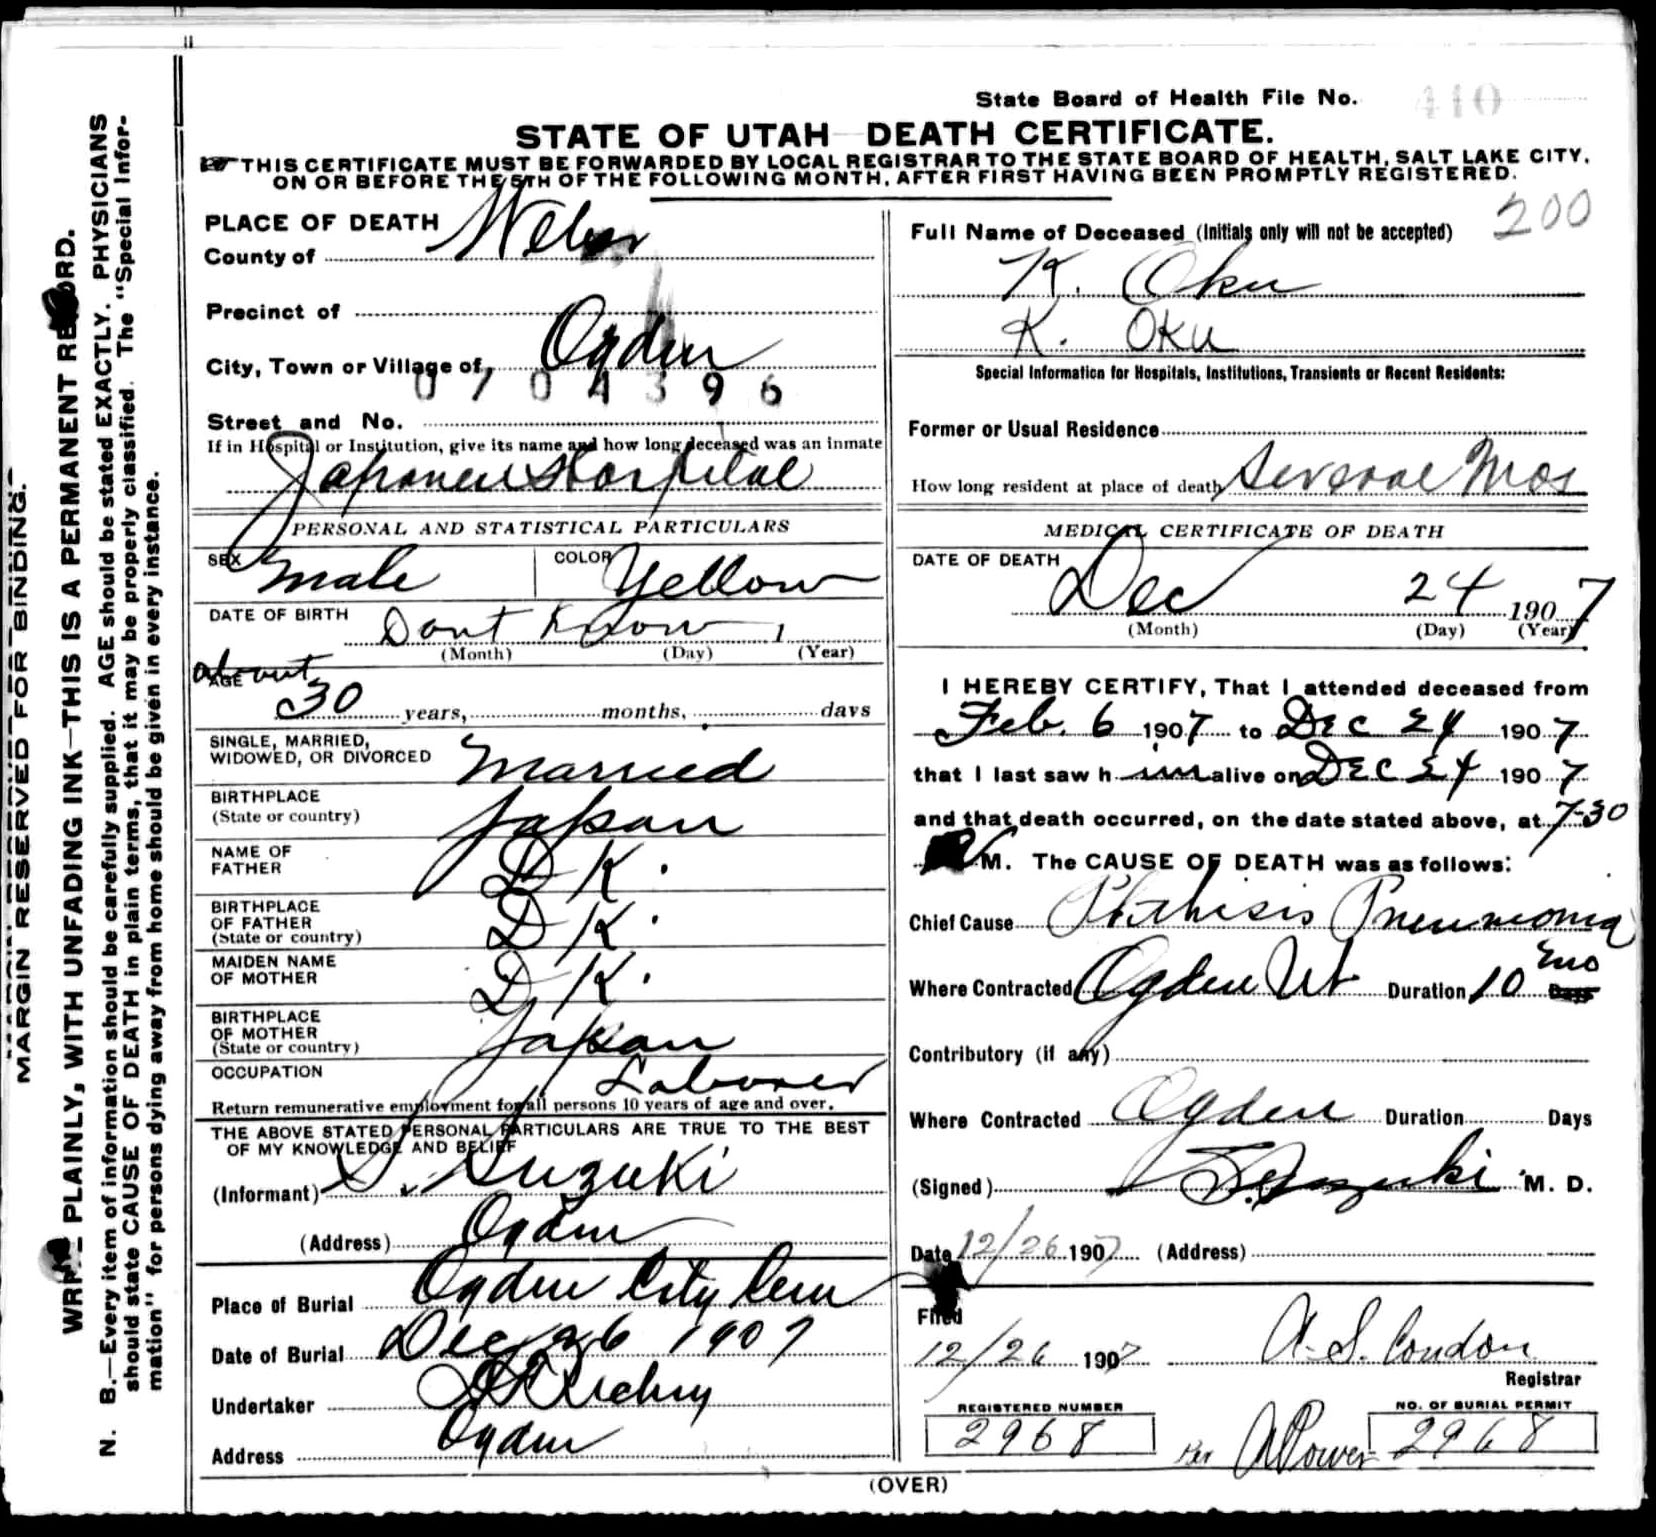 State Board of Health File No. 410
STATE OF UTAH DEATH CERTIFICATE.
THIS CERTIFICATE MUST BE FORWARDED BY LOCAL REGISTRAR TO THE STATE BOARD OF HEALTH, SALT LAKE CITY,
ON OR BEFORE THE 5TH OF THE FOLLOWING MONTH, AFTER FIRST HAVING BEEN PROMPTLY REGISTERED.
MARGIN RESERVED FOR BINDING.
PLAINLY, WITH UNFADING INK—THIS IS A PERMANENT RECORD.
N. B.—Every item of information should be carefully supplied. AGE should be stated EXACTLY. PHYSICIANS
should state CAUSE OF DEATH in plain terms, that it may be properly classified. The "Special Infor-
mation" for persons dying away from home should be given in every instance.
PLACE OF DEATH
County of Weber
Precinct of
City, Town or Village of Ogden
0704396
Street and No.
If in Hospital or Institution, give its name and how long deceased was an inmate
Japanese Hospital
PERSONAL AND STATISTICAL PARTICULARS
SEX Male COLOR Yellow
DATE OF BIRTH Dont Know 1
(Month) (Day) (Year)
AGE about
30 years, months, days
SINGLE, MARRIED,
WIDOWED, OR DIVORCED Married
BIRTHPLACE
(State or country) Japan
NAME OF
FATHER D K.
BIRTHPLACE
OF FATHER
(State or country) D K.
MAIDEN NAME
OF MOTHER D K.
BIRTHPLACE
OF MOTHER
(State or country) Japan
OCCUPATION Laborer
Return remunerative employment for all persons 10 years of age and over.
THE ABOVE STATED PERSONAL PARTICULARS ARE TRUE TO THE BEST
OF MY KNOWLEDGE AND BELIEF
(Informant) S. Suzuki
(Address) Ogden
Place of Burial Ogden City Cem
Date of Burial Dec 26 1907
Undertaker
Address Ogden
200
Full Name of Deceased (Initials only will not be accepted)
K. Oku
K. OKu
Special Information for Hospitals, Institutions, Transients or Recent Residents:
Former or Usual Residence
How long resident at place of death Several Mos
MEDICAL CERTIFICATE OF DEATH
DATE OF DEATH
Dec 24 1907
(Month) (Day) (Year)
I HEREBY CERTIFY, That I attended deceased from
Feb. 6 1907 to DEC 24 1907
that I last saw him alive on DEC 24 1907
and that death occurred, on the date stated above, at 7-30
M. The CAUSE OF DEATH was as follows:
Chief Cause Phthisis Pneumonia
Where Contracted Ogden Ut Duration 10 Days
Contributory (if any)
Where Contracted Ogden Duration Days
(Signed) Suzuki M. D.
Date 12/26 1907 (Address)
Filed
12/26 1907 A. S. Condon
Registrar
REGISTERED NUMBER
2968
Per A Power
NO. OF BURIAL PERMIT
2968
(OVER)